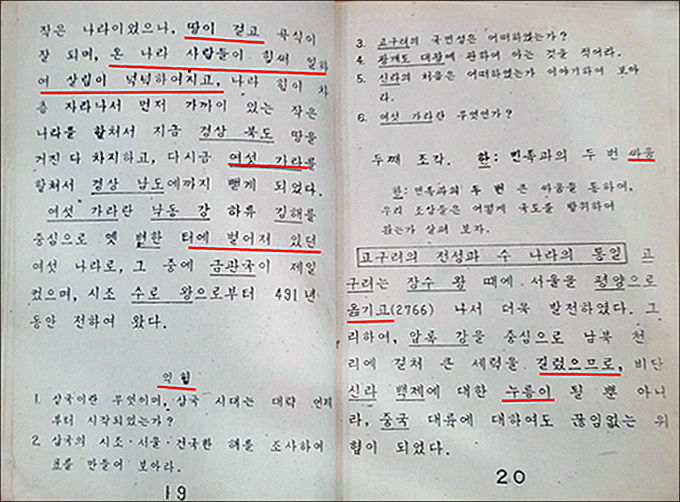 작은 나라이었으나, 땅이 걸고 곡식이
잘 되며, 온 나라 사람들이 힘써 일하
여 살림이 넉넉하여지고, 나라 힘이 차
츰 자라나서 먼저 가까이 있는 작은
나라를 합쳐서 지금 경상 북도 땅을
거진 다 차지하고, 다시금 여섯 가라를
합쳐서 경상 남도에까지 뻗게 되었다.
여섯 가라란 낙동 강 하유 김해를
중심으로 옛 변한 터에 벌어져 있던
여섯 나라로, 그 중에 금관국이 제일
컸으며, 시조 수로 왕으로부터 491년
동안 전하여 왔다.
익힘
1. 삼국이란 무엇이며, 삼국 시대는 대략 언제
부터 시작되었는가?
2. 삼국의 시조·서울·건국한 해를 조사하여
표를 만들어 보아라.
19
3. 고구려의 국민성은 어떠하였는가?
4. 광개토 대왕에 관하여 아는 것을 적어라.
5. 신라의 처음은 어떠하였는가 이야기하여 보아
라.
6. 여섯 가라란 무엇인가?
두째 조각. 한: 민족과의 두 번 싸움
한: 민족과의 두 번 큰 싸움을 통하여,
우리 조상들은 어떻게 국도를 발휘하여
왔는가 살펴 보자.
고구려의 전성과 수 나라의 통일 고
구려는 장수 왕 때에 서울을 평양으로
옮기고(2766) 나서 더욱 발전하였다. 그
리하여, 압록 강을 중심으로 남북 천
리에 걸쳐 큰 세력을 길렀으므로, 비단
신라 백제에 대한 누름이 될 뿐 아니
라, 중국 대륙에 대하여도 끊임없는 위
협이 되었다.
20